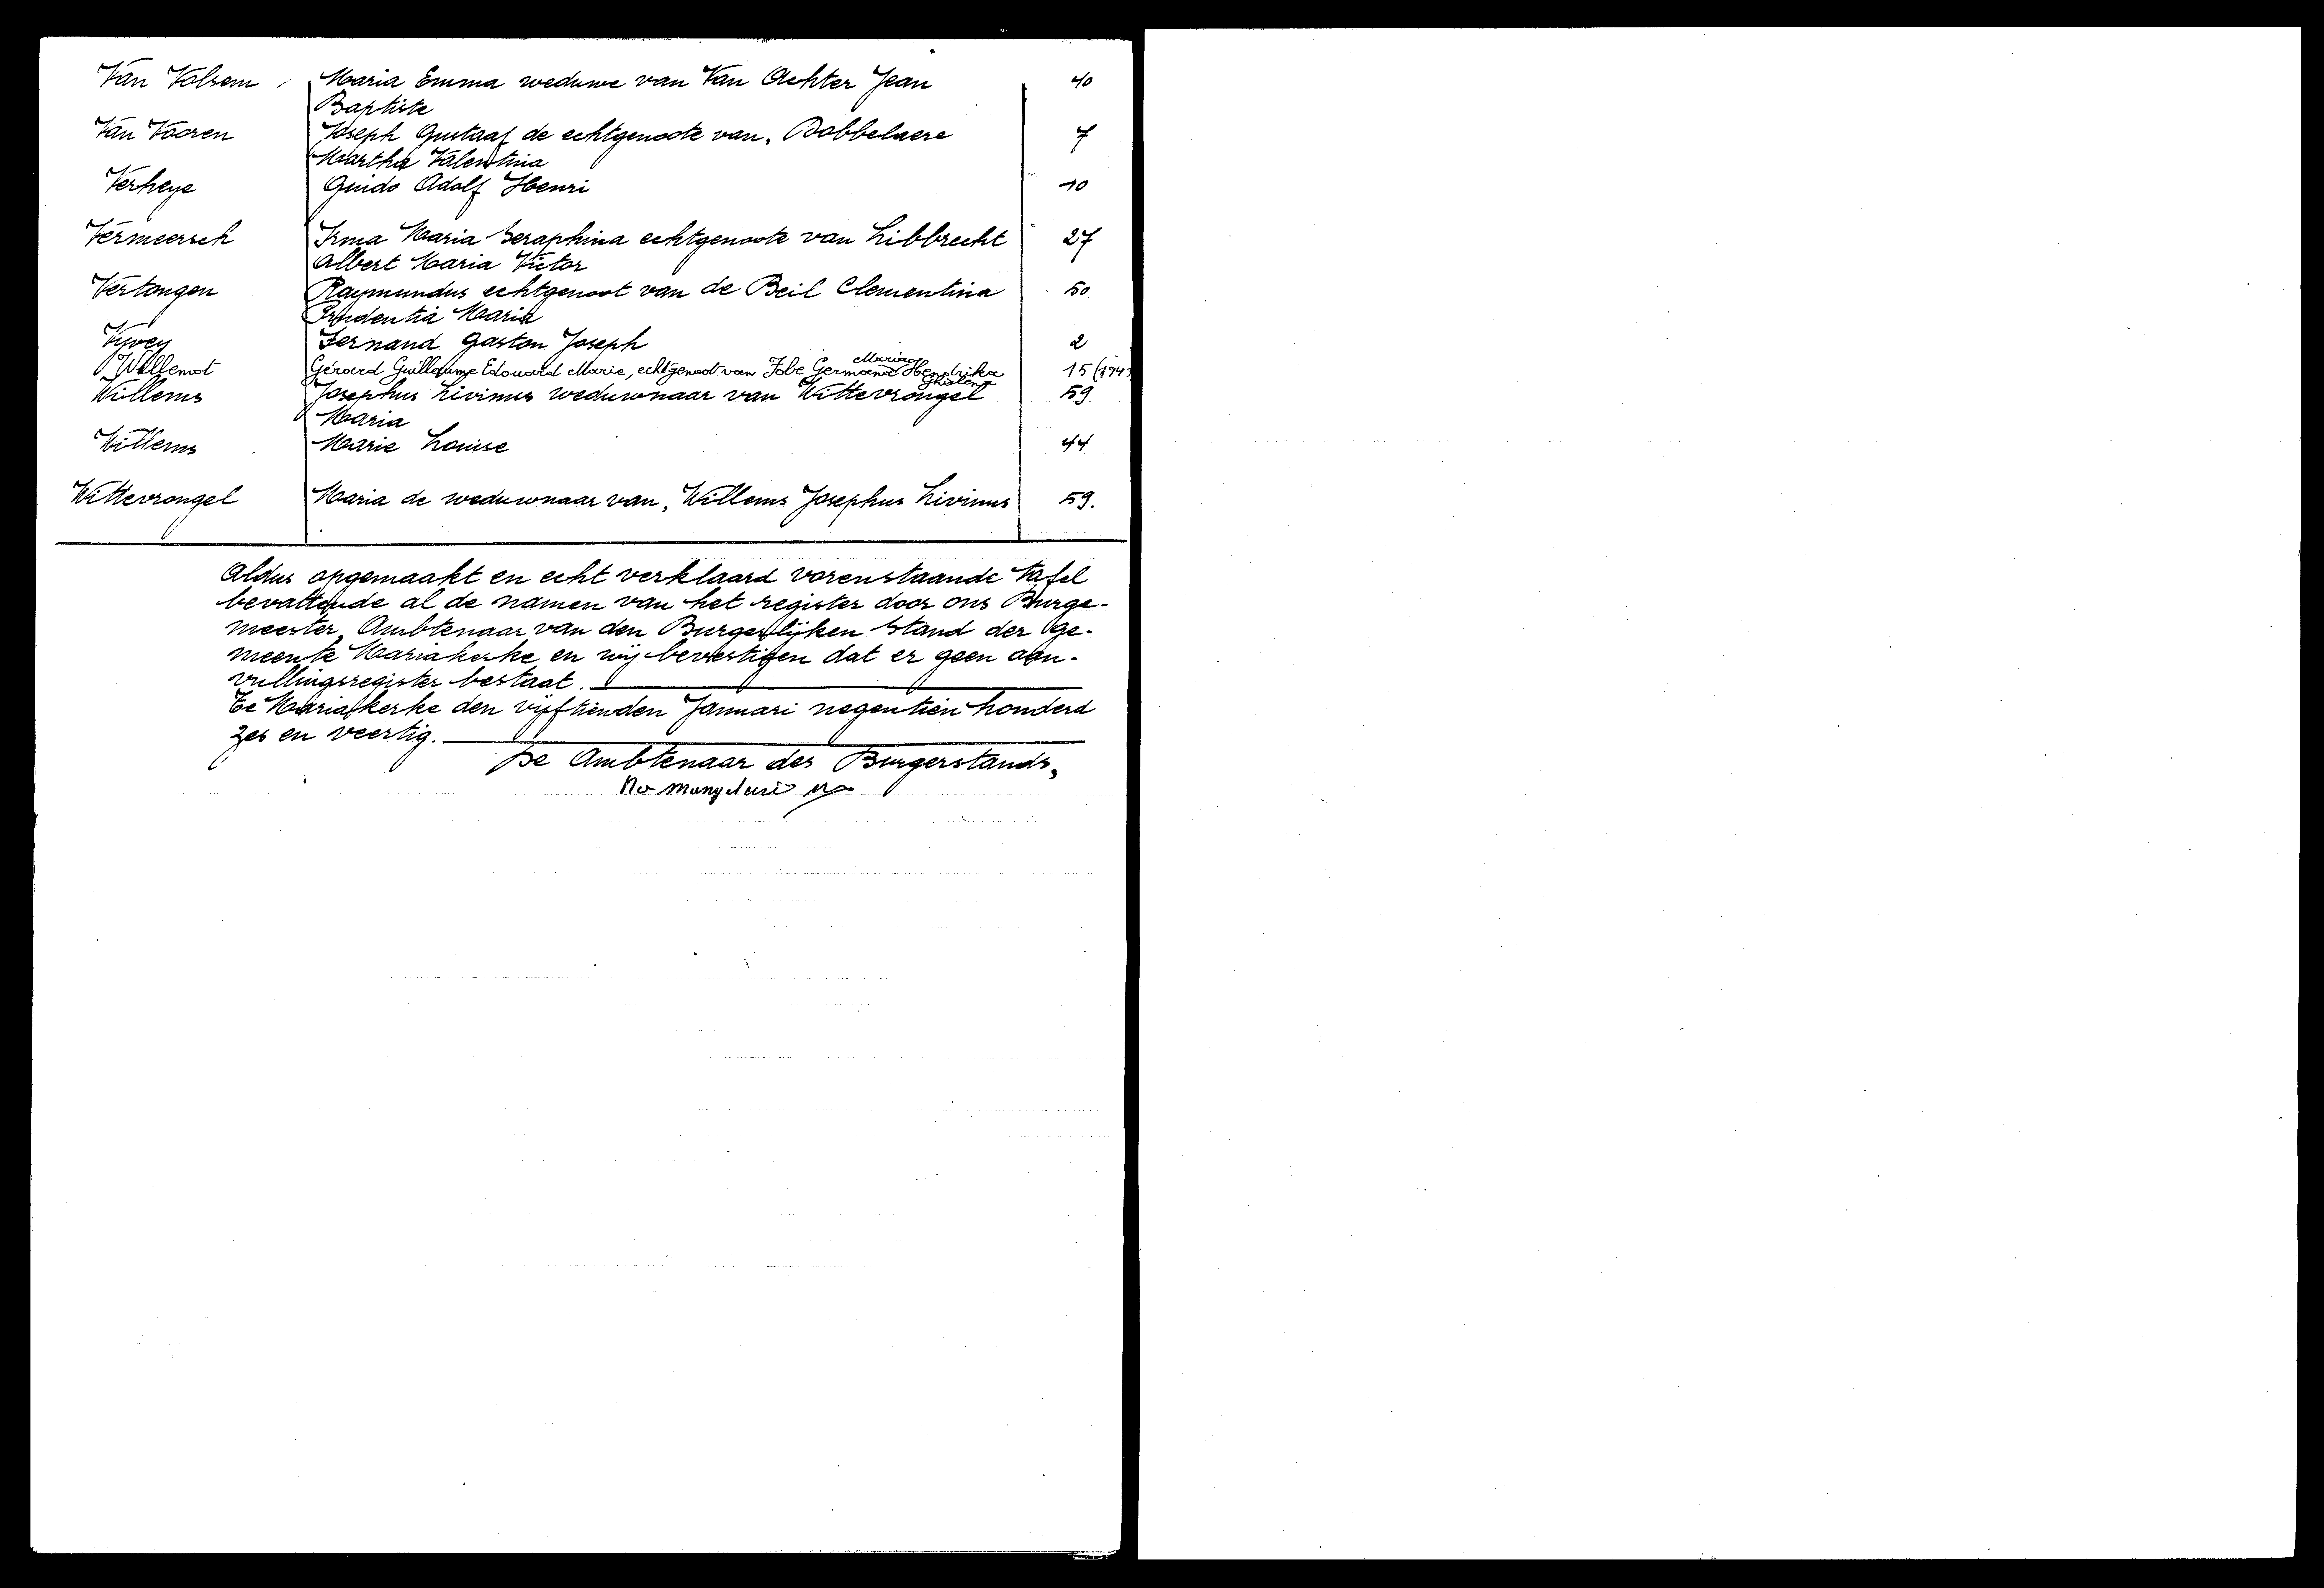 Van Volsem Maria Emma weduwe van Van Achter Jean 40
Baptiste
Van Vaoren Joseph Gustaaf de echtgenoote van, Dobbelaere 7
Martha Valentina
Verheye Guido Adolf Henri 10
Vermeersch Irma Maria Seraphina echtgenoote van Libbrecht 27
Albert Maria Victor
Vertongen Raymundus echtgenoot van de Beil Clementina 50
Prudentia Maria
Vyvey Fernand Gaston Joseph 2
Marina
Willemot Gérard Guillaume Edouard Marie, echtgenoot van Jobe Germana Hendrika 15
Ghislena
Willems Josephus Livinus weduwnaar van Wittevrongel 59
Maria
Willems Marie Louise 44
Wittevrongel Maria de weduwnaar van, Willems Josephus Livinus 59.
Aldus opgemaakt en echt verklaard vorenstaande tafel
bevattende al de namen van het register door ons Burge-
meester, Ambtenaar van den Burgerlijken Stand der ge-
meente Mariakerke en wij bevestigen dat er geen aan-
vullingsregister bestaat.
Te Mariakerke den vijftienden Januari negentien honderd
zes en veertig.
De Ambtenaar des Burgerstands,